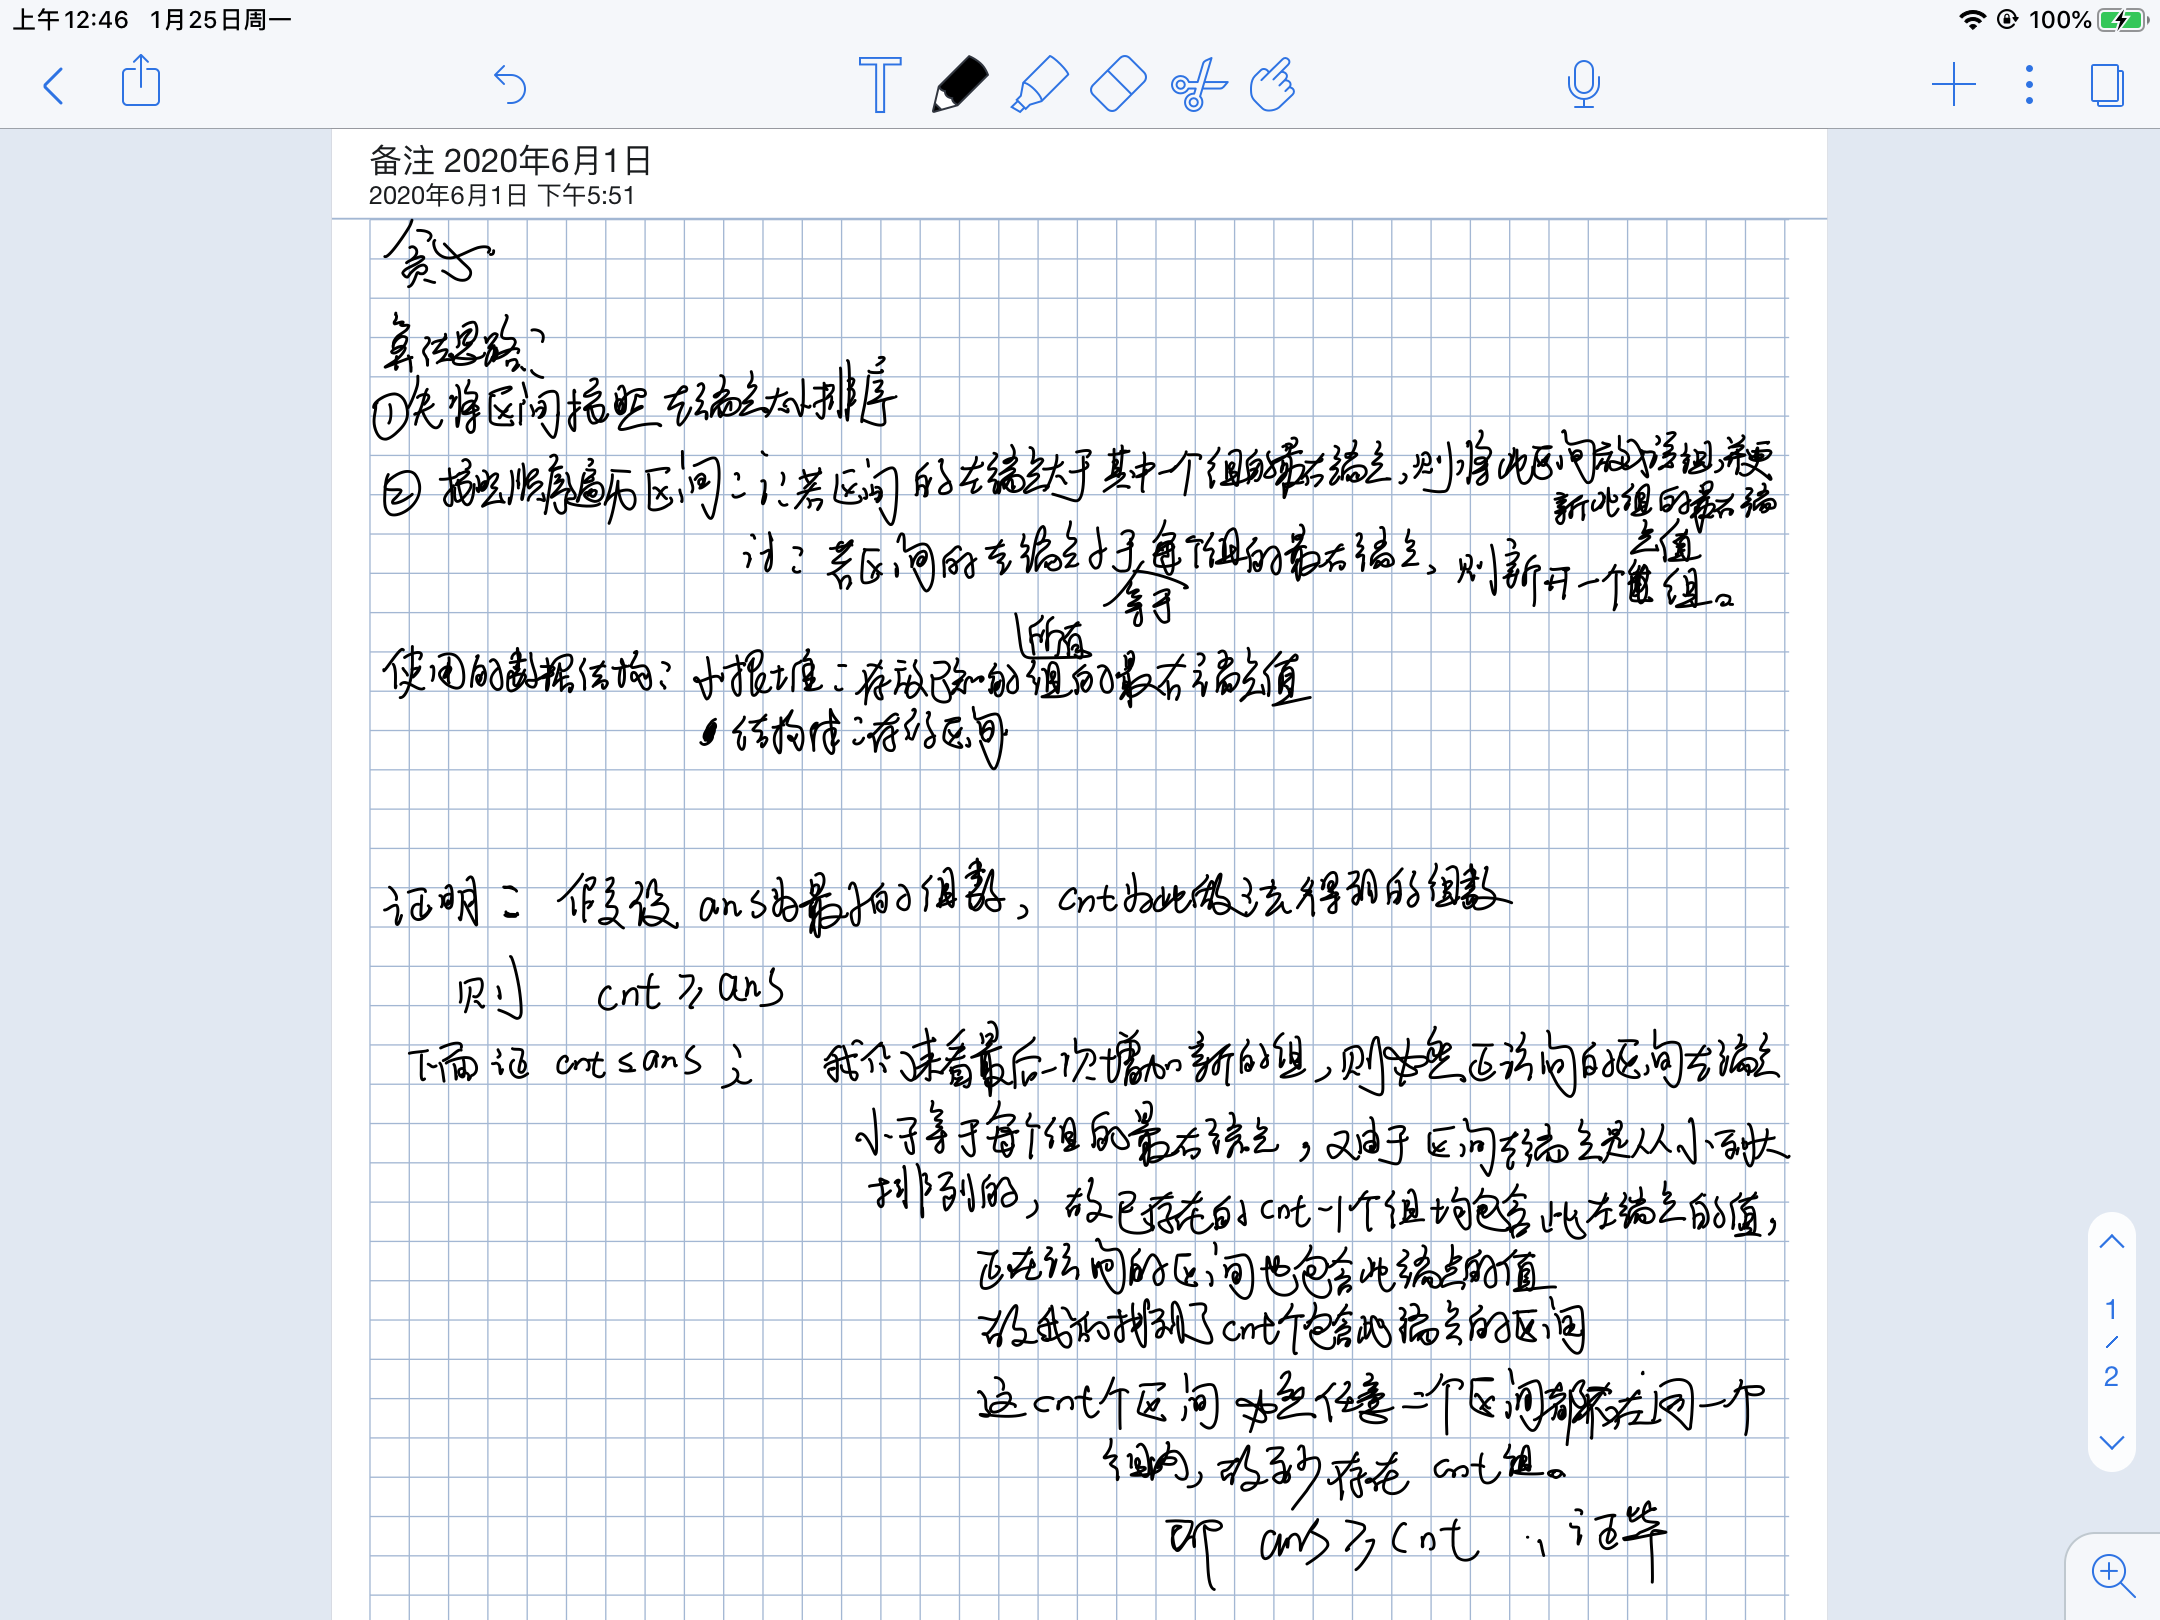 上午12:46 1月25日周一
100%
备注 2020年6月1日
2020年6月1日 下午5:51
贪心
算法思路:
①先将区间按照左端点大小排序
② 按照顺序遍历区间: i: 若区间的左端点大于其中一个组的最右端点,则将此区间放入该组,并更
新此组的最右端
点值
ii: 若区间的左端点小于每个组的最右端点,则新开一个组。
等于
所有
使用的数据结构: 小根堆:存放已知的组的最右端点值
结构体:存给区间
证明: 假设 ans为最小的组数, cnt为此做法得到的组数
则 cnt ≥ ans
下面证 cnt ≤ ans : 我们来看最后一次增加新的组,则必然正访问的区间左端点
小于等于每个组的最右端点,又由于区间左端点是从小到大
排列的,故已存在的cnt-1个组均包含此左端点的值,
正在访问的区间也包含此端点的值
故我们找到了cnt个包含此端点的区间
这cnt个区间必然任意二个区间都不在同一个
组内,故至少存在 cnt组。
即 ans ≥ cnt ∴ 证毕
1
/
2